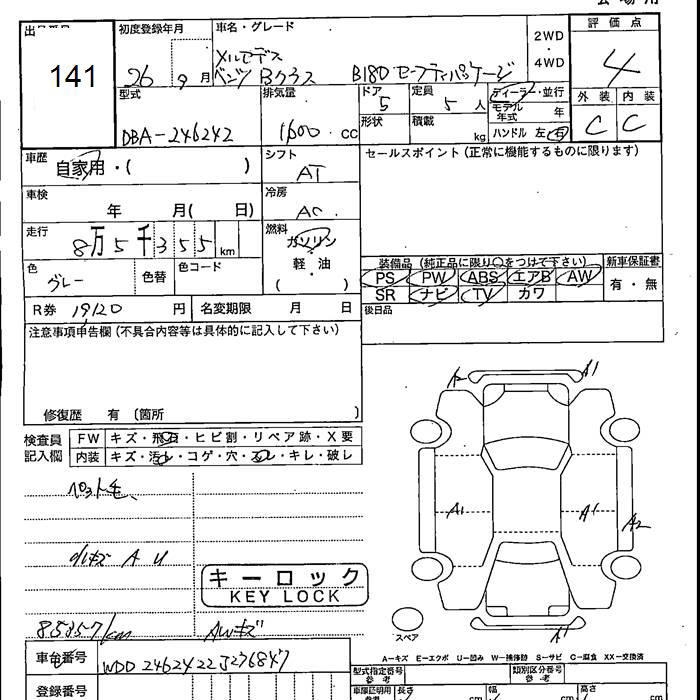 初度登録年月 車名・グレード 評価点
141
26 9月
メルセデス
ベンツ Bクラス B180 セーフティパッケージ
2WD
・
4WD
4
型式 排気量 ドア 定員 ディーラー・並行 外装 内装
DBA-246242 1600 cc 5 5人 モデル年式 年
形状 積載 kg ハンドル 左・右 C C
車歴 シフト セールスポイント(正常に機能するものに限ります)
自家用・( ) AT
車検 冷房
年 月( 日) AC
走行 燃料
8万5千355km ガソリン
軽・油
( )
色 色替 色コード
グレー
装備品(純正品に限り○をつけて下さい) 新車保証書
PS PW ABS エアB AW 有・無
SR ナビ TV カワ
R券 19120円 名変期限 月 日 後日品
注意事項申告欄(不具合内容等は具体的に記入して下さい)
修復歴 有(箇所 )
検査員記入欄 FW キズ・飛石・ヒビ割・リペア跡・X要
内装 キズ・汚れ・コゲ・穴・スレ・キレ・破レ
A2 A1
A1 A1 A2
ペットモ、
小キズ A U
キーロック
KEY LOCK
85357km AWキズ
スペア
A1
A-キズ E-エクボ U-凹み W-補修跡 S-サビ C-腐食 XX-交換済
車台番号 WDD2462422J276847
型式指定番号 参考 類別区分番号 参考
登録番号 車庫証明用 参考 長さ cm 幅 cm 高さ cm